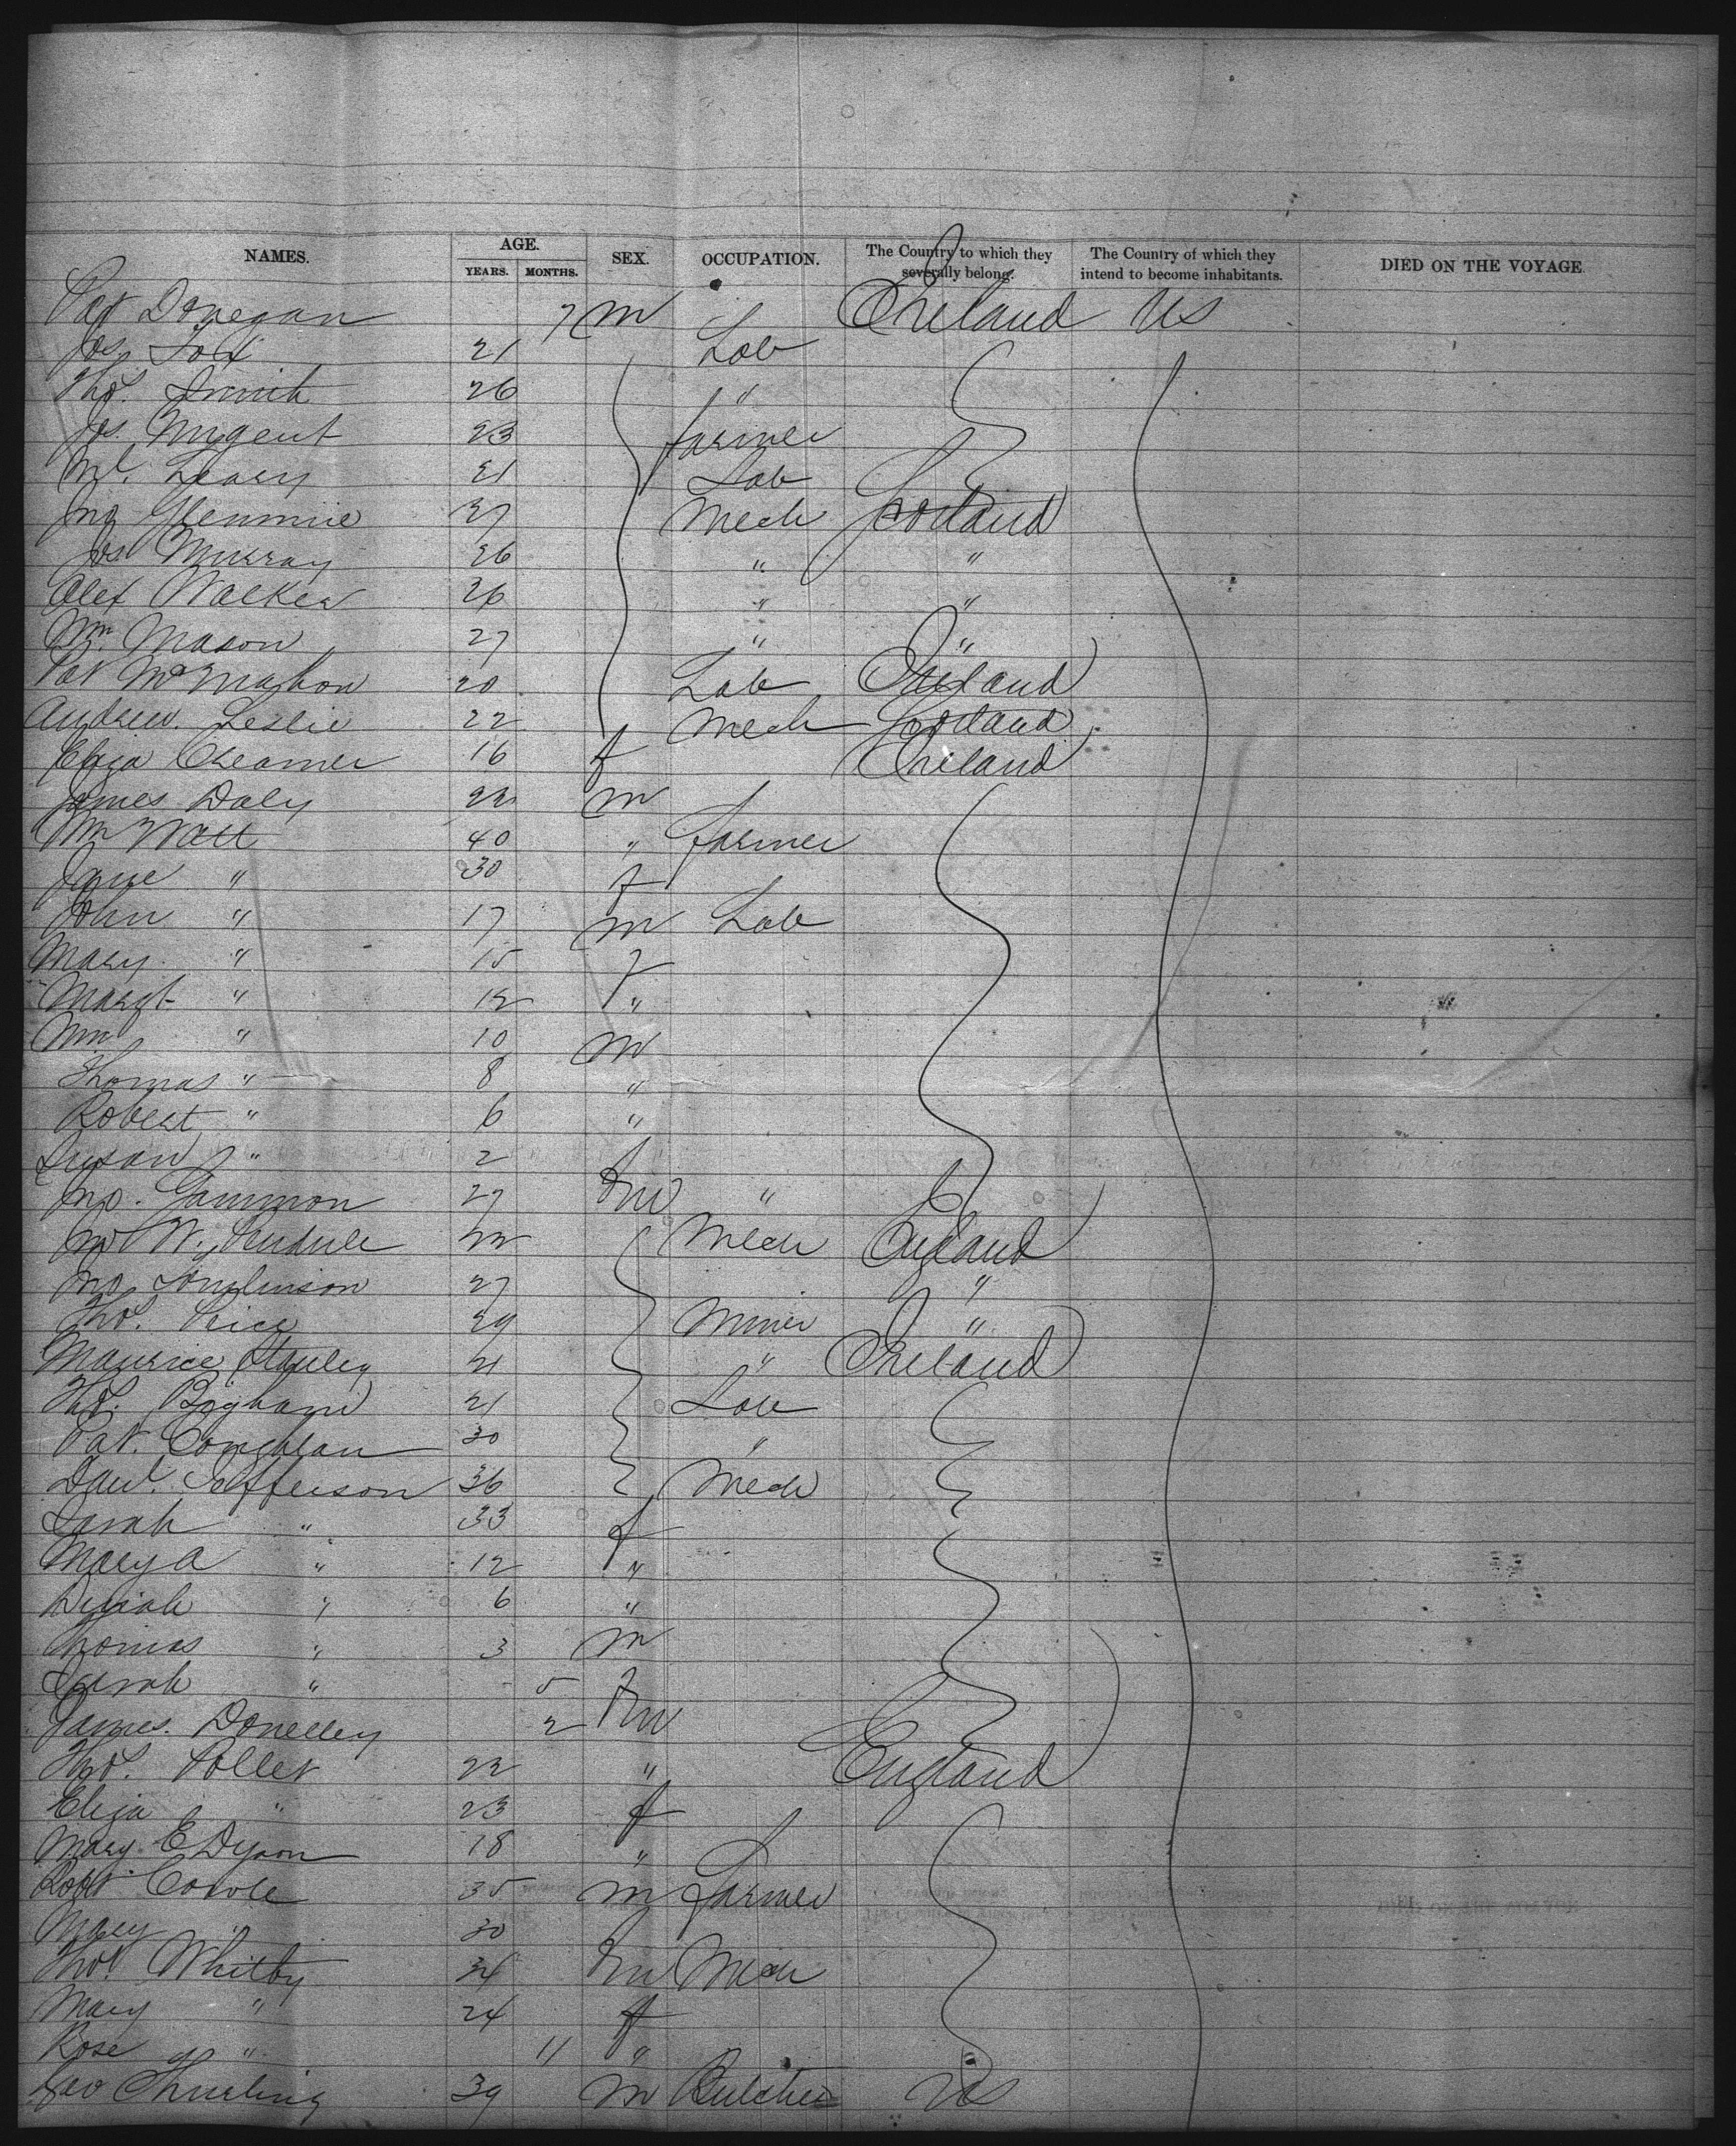 NAMES. AGE. SEX. OCCUPATION. The Country to which they severally belong. The Country of which they intend to become inhabitants. DIED ON THE VOYAGE
YEARS. MONTHS.
Pat Donegan 7 m Ireland US
Jos. 21 Lab
Thos. Smith 26 "
Jos. Nugent 23 farmer
Ml. Leary 21 Lab
Jno Glennnie 27 Mech Scotland
Jos. Murray 26 " "
Alex Walker 26 " "
Wm. Mason 27 " "
Pat McMahon 20 Lab Ireland
Andrew Leslie 22 Mech Scotland
Eliza Creamer 16 f Ireland
James Daly 22 m
Wm Watt 40 " farmer
Jane " 30 f
John " 17 m Lab
Mary " 15 f
Margt " 12 "
Wm " 10 m
Thomas " 8 "
Robert " 6 "
Susan " 2 f
Jno. Gammon 27 m "
W. 22 Mech England
Jno Tomlinson 27 "
Thos. Price 29 Miner "
Maurice Stanley 21 " Ireland
Thos. Bigham 21 Lab
Pat. Coughlan 30 "
Danl. Jefferson 36 Mech
Sarah " 33 f
Mary A " 12 "
" 6 "
Thomas " 3 m
Sarah " 5 f
James Donelley 2 m
Thos. Pollet 22 " England
Eliza " 23 f
Mary E Dyson 18 "
Robt Cowle 35 m Farmer
Mary " 30 f
Thos. Whitby 34 m Mech
Mary " 24 f
Rose " 11 "
Geo Thurling 39 m Butcher US